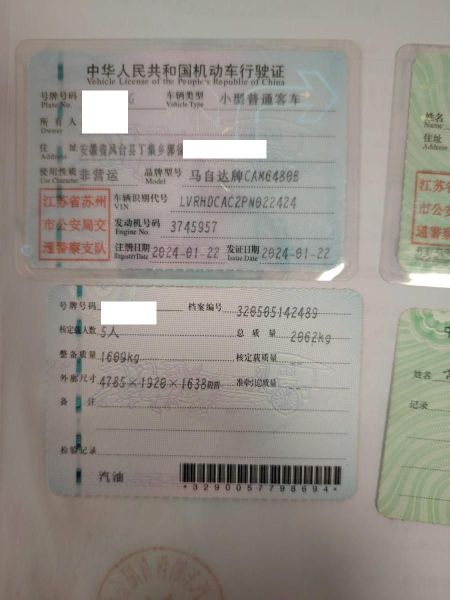 中华人民共和国机动车行驶证
Vehicle License of the People's Republic of China
号牌号码 车辆类型 小型普通客车
Plate No. Vehicle Type
所有人
Owner
住址 安徽省凤台县丁集乡郭
Address
使用性质 非营运 品牌型号 马自达牌CAM6480B
Use Character Model
江苏省苏州 车辆识别代号 LVRHDCAC2PN022424
VIN
市公安局交 发动机号码 3745957
Engine No.
通警察支队 注册日期 2024-01-22 发证日期 2024-01-22
Register Date Issue Date
号牌号码 档案编号 320505142489
核定载人数 5人 总质量 2062kg
整备质量 1609kg 核定载质量
外廓尺寸 4785×1920×1638mm 准牵引总质量
备注
检验记录
汽油
*3290057798694*
姓名
Name
住址
Address
江苏省
市公安
通警察
姓名
记录